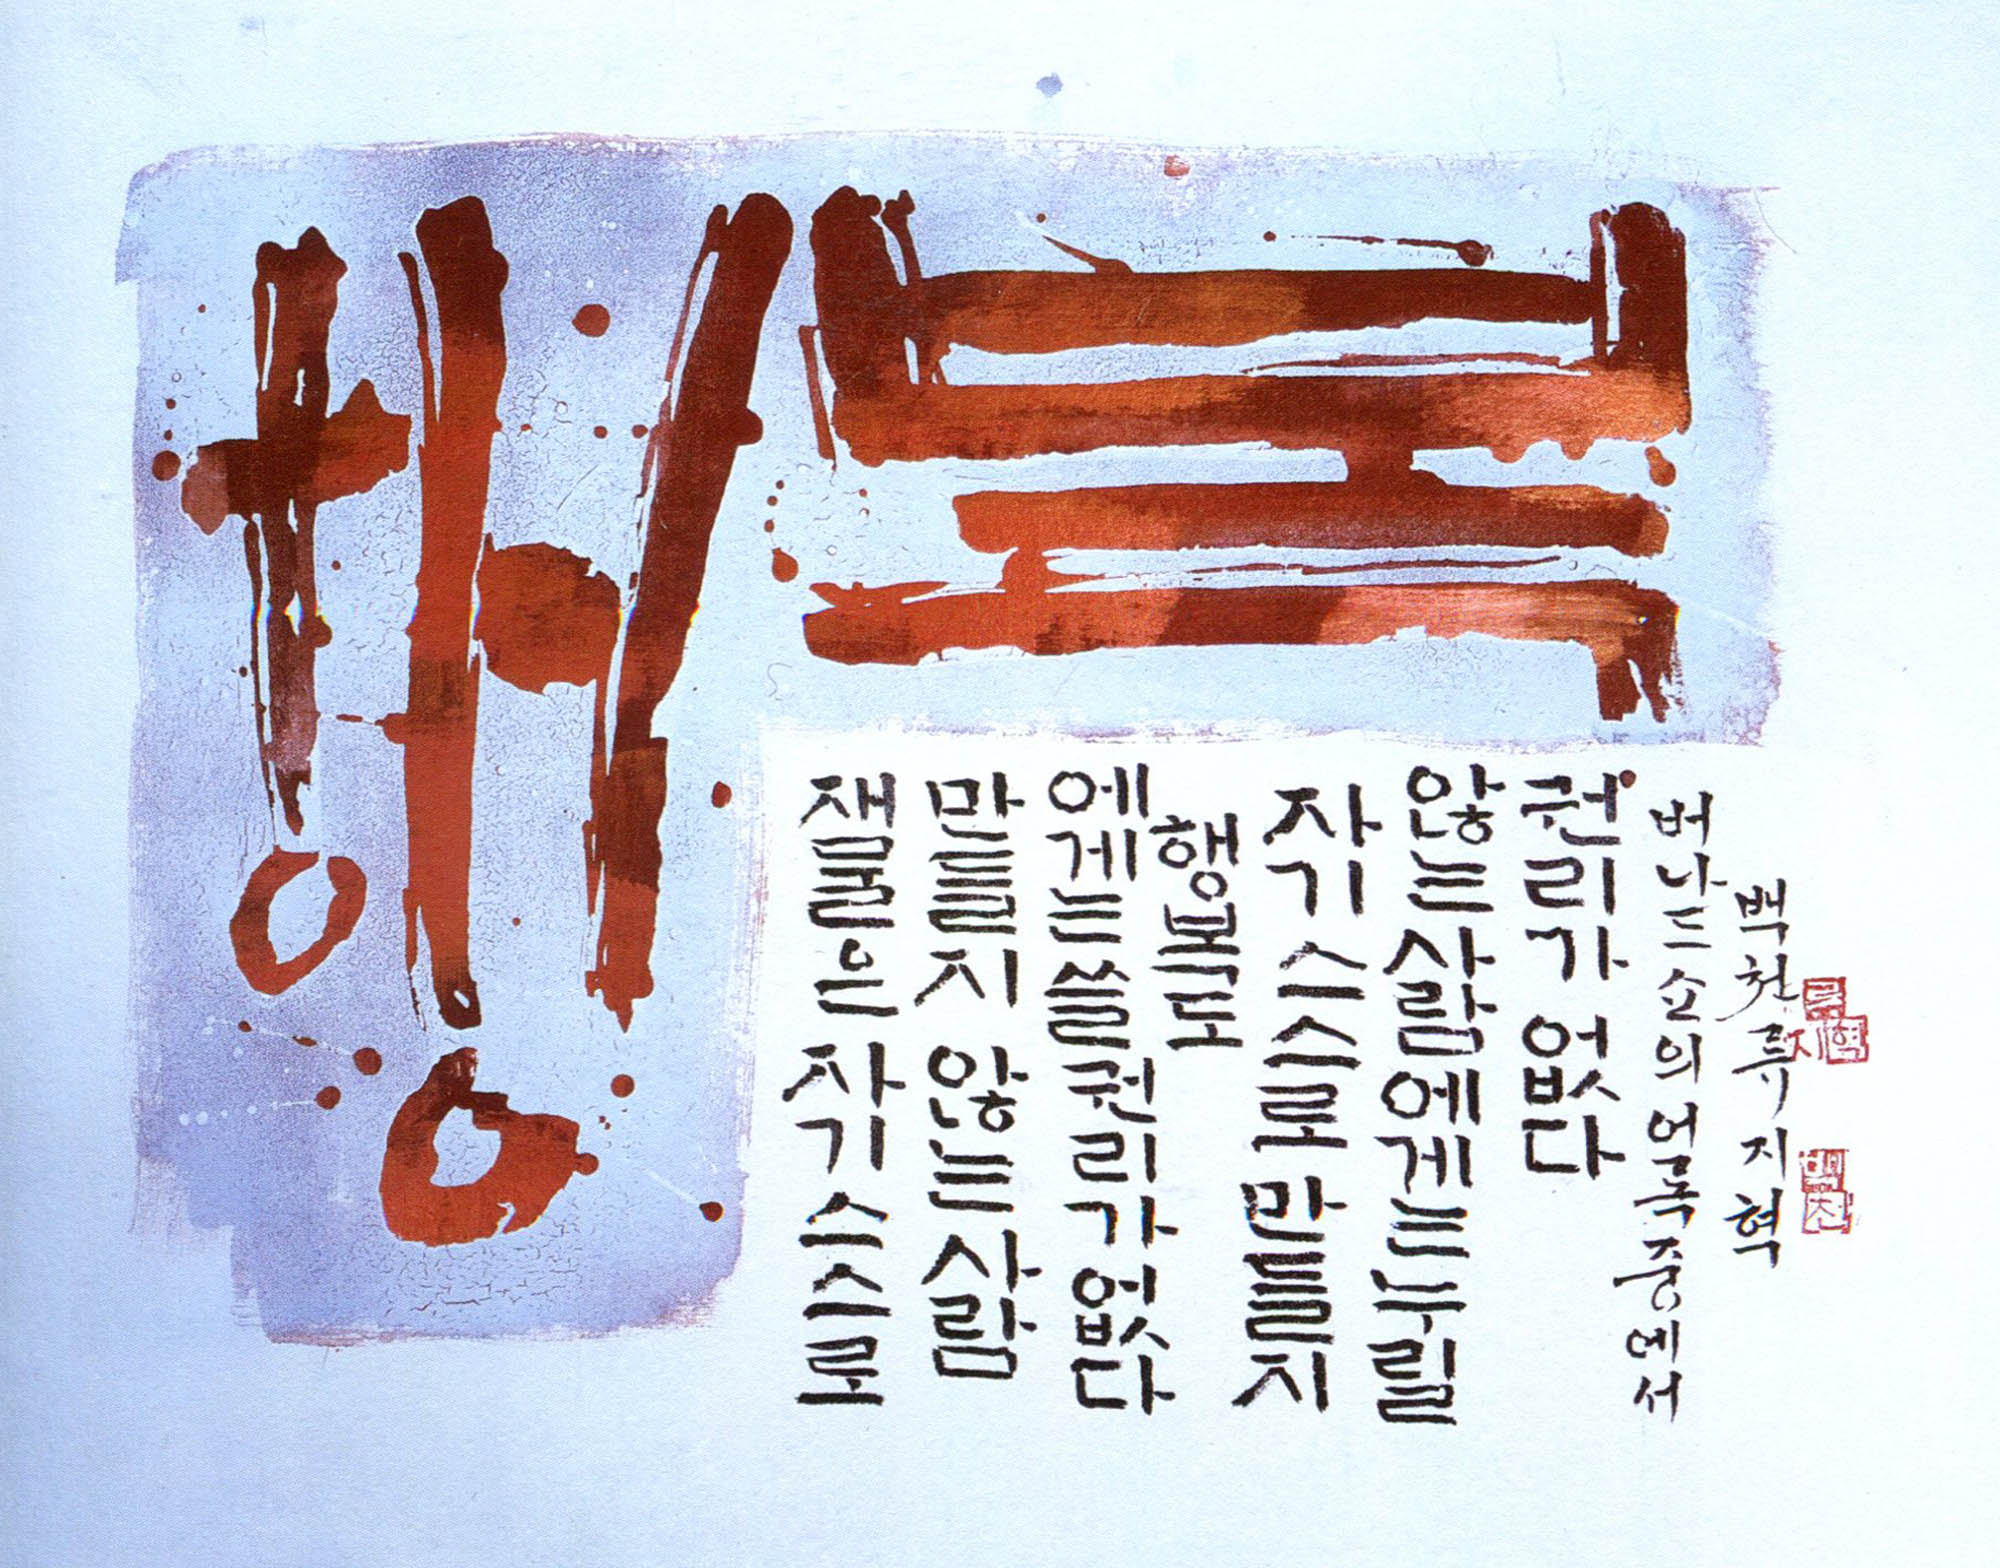 행복
재물은 자기 스스로
만들지 않는 사람
에게는 쓸 권리가 없다
행복도
자기 스스로 만들지
않는 사람에게는 누릴
권리가 없다
버나드 소의 어록 중에서
백천 류지혁
류지혁
백천